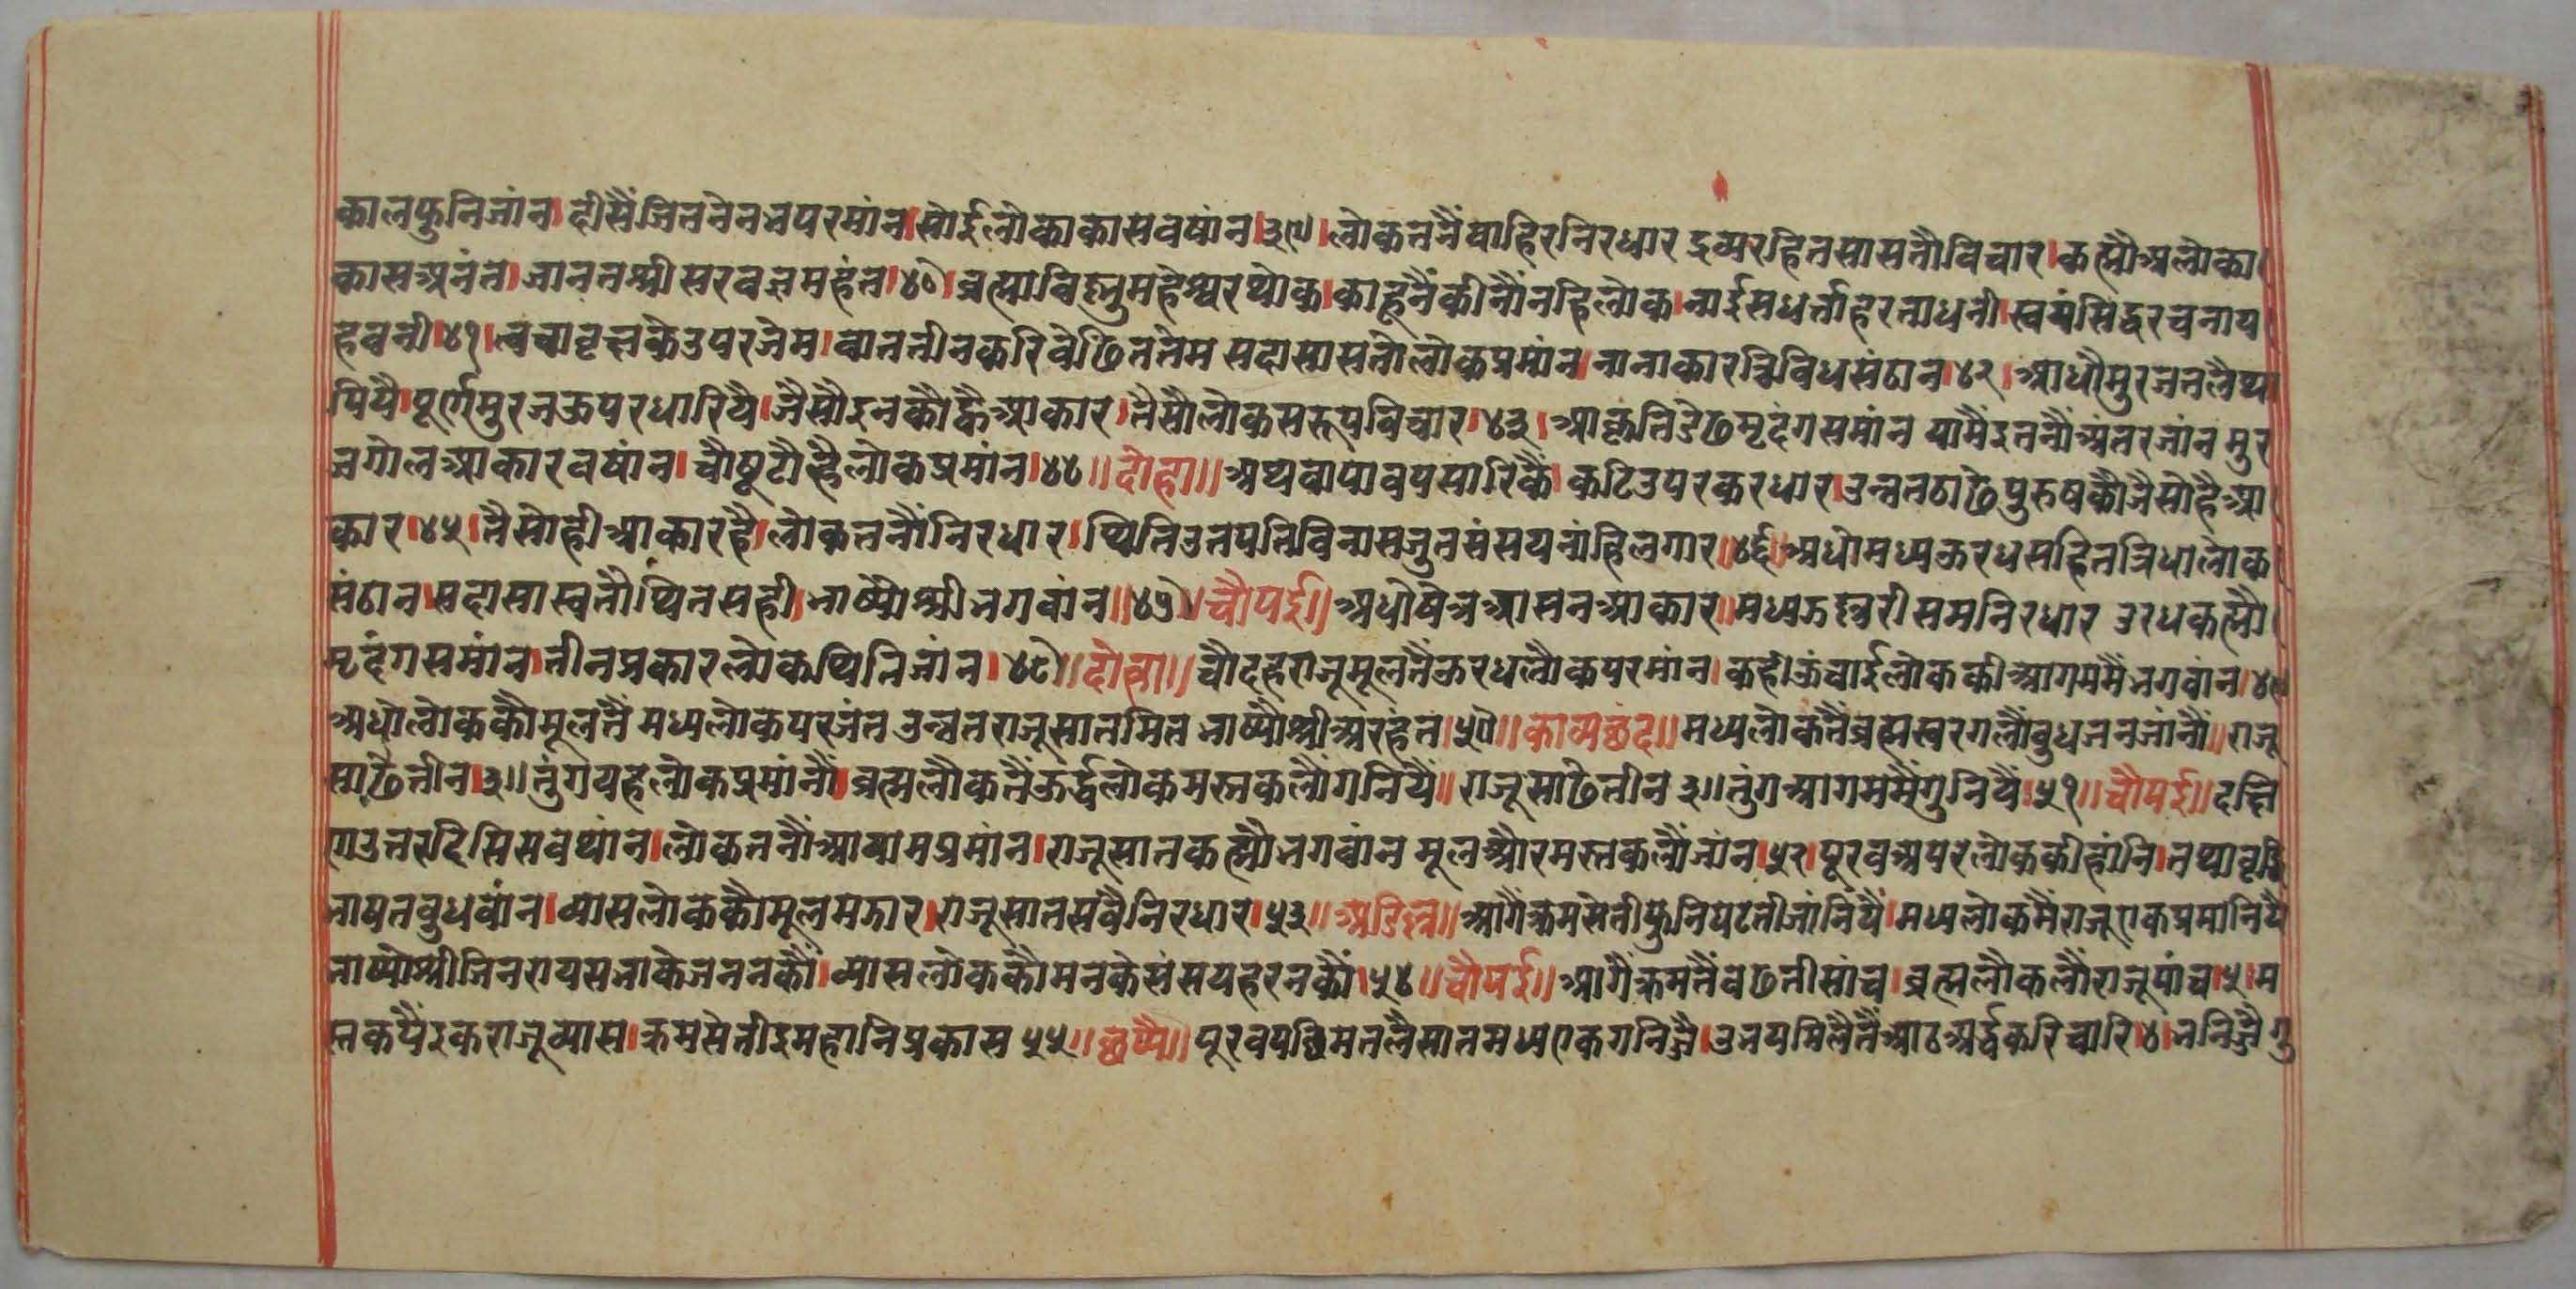 कालफुनिजांन। दीसैंजिततेतनपरमांन।सोईलोकाकासवषांन।३९।लोकततैंवाहिरनिरधार द्रव्यरहितसासतौविचार।कह्यौअलोका
कासअनंत।जानतश्रीसरवज्ञमहंत।४०।ब्रह्माविष्नुमहेश्वरथोक।काहूनैंकीनौंनहिलोक।नाईसधर्त्ताहरताधनी।स्वयंसिद्धरचनाय
हबनी।४१।त्वचावृच्छकेउपरजेम।वाततीनकरिवेढिततेम सदासासतोलोकप्रमांन।नानाकारत्रिविधसंठान।४२।आधौमुरजतलैथा
पियै।पूर्णमुरजऊपरधारियै।जैसौइनकौह्वैआकार।तैसौलोकसरूपविचार।४३।आकृतिडेढमृदंगसमांन यामैंइतनौंअंतरजांन मुर
जगोलआकारवषांन।चौषूटौहैलोकप्रमांन।४४॥दोहा॥अथवापावपसारिकैं।कटिउपरकरधार।उन्नतठाढेपुरुषकौजैसोहैआ
कार।४५।तैसोहीआकारहै।लोकतनौंनिरधार।थितिउतपतिविनाससजुतसंसयनांहिलगार॥४६॥अधोमध्यऊरधसहितत्रिधालोक
संठान।सदासास्वतौथितसही।भाष्यौश्रीभगवांन॥४७॥चौपई॥अधोवेत्रआसनआकार॥मध्यझल्लरीसमनिरधार उरधकह्यौ
मृदंगसमांन।तीनप्रकारलोकथितिजांन।४८॥दोहा॥चौदहराजूमूलतैंऊरधलौकपरमांन।कहीऊंचाईलोककीआगममैंभगवांन।४९
अधोलोककौमूलतैं मध्यलोकपरजंत उन्नतराजूसातमित भाष्यौश्रीअरहंत।५०॥काव्यछंद॥मध्यलोकतैंब्रह्मस्वरगलौंबुधजनजांनौं॥राजू
साढैतीन।३॥तुंगयहलोकप्रमांनौं।ब्रह्मलौकतैंऊर्द्धलोकमस्तकलौंगनियैं॥राजूसाढेतीन३॥तुंगआगममैंगुनियैं।५१॥चौपई॥दछि
णउत्तरदिसिसवथांन।लोकतनौंआयामप्रमांन।राजूसातकह्यौभगवांन मूलऔरमस्तकलौंजांन।५२।पूरवअपरलोककीहांनि।तथावृद्धि
भाषतबुधवांन।व्यासलोककौमूलमझार।राजूसातसवैनिरधार।५३॥अडिल्ल॥आगैंक्रमसेतीफुनिघटतीजांनियैं।मध्यलोकमैंराजूएकप्रमानियै
भाष्योश्रीजिनरायसभाकेजननकौं।व्यासलोककौमनकेसंसयहरनकौं।५४॥चौपई॥आगैंक्रमतैंवढतीसांच।ब्रह्मलौकलौंराजूपांच।५।म
स्तकपैंइकराजूव्यास।क्रमसेतीइमहानिप्रकास ५५॥छप्पै॥पूरवपछिमतलैसातमध्यएकगनिज्जै।उभयमिलैतैंआठअर्द्धकरिचारि।४।भनिज्जैगु